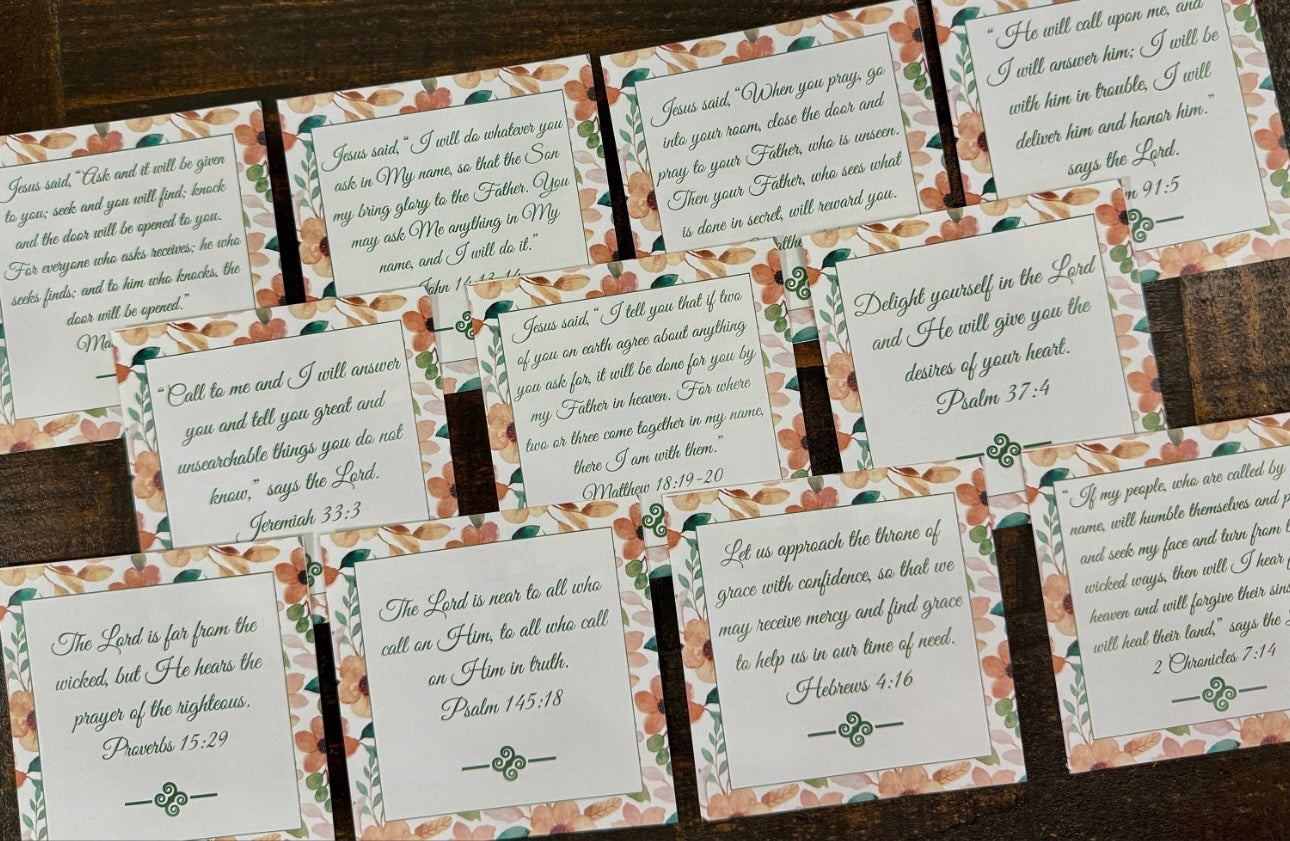 Jesus said, “Ask and it will be given
to you; seek and you will find; knock
and the door will be opened to you.
For everyone who asks receives; he who
seeks finds; and to him who knocks, the
door will be opened.”
Ma
Jesus said, “ I will do whatever you
ask in My name, so that the Son
my bring glory to the Father. You
may ask Me anything in My
name, and I will do it.”
John 14:13-14
Jesus said, “When you pray, go
into your room, close the door and
pray to your Father, who is unseen.
Then your Father, who sees what
is done in secret, will reward you.
“ He will call upon me, and
I will answer him; I will be
with him in trouble, I will
deliver him and honor him.”
says the Lord.
m 91:5
“Call to me and I will answer
you and tell you great and
unsearchable things you do not
know,” says the Lord.
Jeremiah 33:3
Jesus said, “ I tell you that if two
of you on earth agree about anything
you ask for, it will be done for you by
my Father in heaven. For where
two or three come together in my name,
there I am with them.”
Matthew 18:19-20
Delight yourself in the Lord
and He will give you the
desires of your heart.
Psalm 37:4
The Lord is far from the
wicked, but He hears the
prayer of the righteous.
Proverbs 15:29
The Lord is near to all who
call on Him, to all who call
on Him in truth.
Psalm 145:18
Let us approach the throne of
grace with confidence, so that we
may receive mercy and find grace
to help us in our time of need.
Hebrews 4:16
“ If my people, who are called by
name, will humble themselves and p
and seek my face and turn from t
wicked ways, then will I hear f
heaven and will forgive their sins
will heal their land,” says the
2 Chronicles 7:14